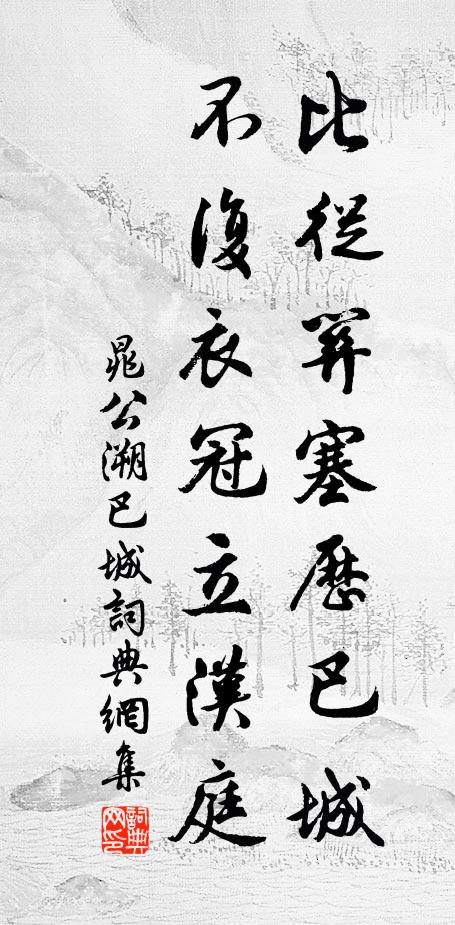 比從關塞歷巴城
不復衣冠立漢庭
晁公溯巴城詞典網集
詞典網印